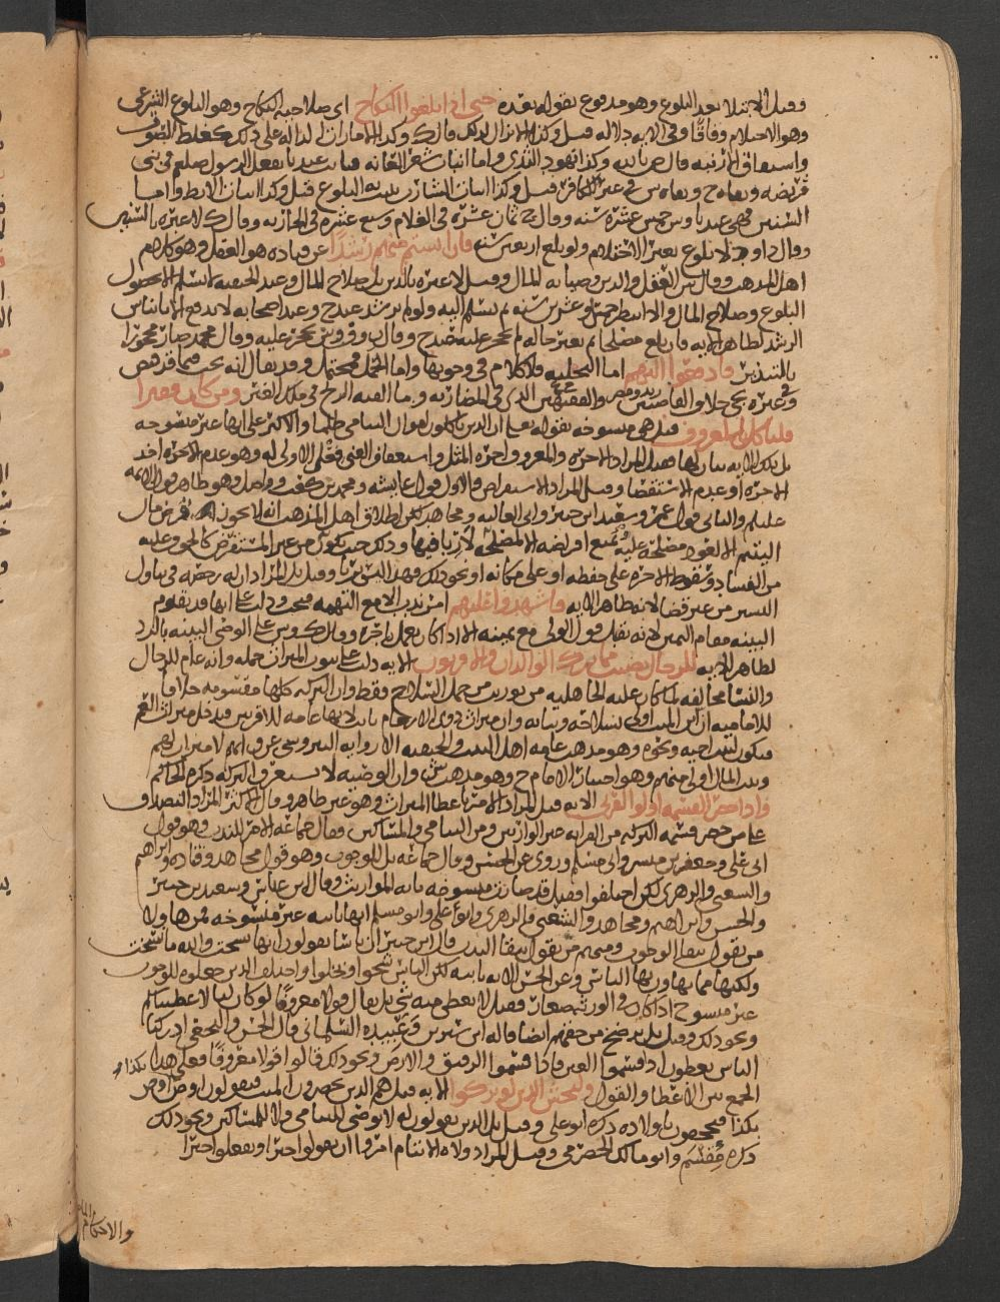 وقيل الابتلا بعد البلوغ وهو مدفوع بقوله بعده حتى اذا بلغوا النكاح اي صلاحية النكاح وهو البلوغ الشرعي
وهو الاحتلام وفاقا وفي الايه دلاله قيل وكذا الانزال لذلك مالك وكذا الامارات الداله على ذلك كغلظ الصوت
وانشقاق الارنبه قال ص بالله وكذا نهود الثدي واما انبات شعر العانه فثابت عندنا بفعل الرسول صلعم في بني
قريضه وبقاه ح وبقاه ش في غير الكافر قيل وكذا انبات الشارب يثبت به البلوغ قيل وكذا انبات الابط واما
السنين فهي عندنا وش خمس عشره سنه وقال ح ثمان عشره في الغلام وسبع عشره في الجاريه وقال ك لا عبره بالسنين
وقال داود لا بلوغ بغير الاحتلام ولو بلغ اربعين سنه فان انستم منهم رشدا عن قتاده هو العقل وهو كلام
اهل المذهب وقال ش العقل والدين وصيانه المال وقيل لا عبره بالدين بل صلاح المال وعند الحنفيه لا يسلم الا بحصول
البلوغ وصلاح المال والا انتظر خمسا وعشرين سنه ثم يسلم اليه ولو لم يرشد عند ح وعند اصحابه لا يدفع الا بايناس
الرشد لظاهر الايه فان بلغ مصلحا ثم تغير حاله لم يحجر عليه عند ح وقال ف وش يحجر عليه وقال محمد صار محجورا
بالتبذير فادفعوا اليهم اما التخليه فلا كلام في وجوبها واما الحمل فمحتمل وقد يقال انه يجب فيما قد قبض
وغيره يجي خلاف القاضيين زيد ومضر والفقيهين في الذي في المضاربه وما القته الريح في ملك الغير ومن كان فقيرا
فلياكل بالمعروف قيل هي منسوخه بقوله تعلى ان الذين ياكلون اموال اليتامى ظلما والاكثر على انها غير منسوخه
بل تلك الايه بيان لها قيل المراد الاجره والمعروف اجره المثل واستعفاف الغني فعل الاولى له وهو عدم الاجره اخذ
الاجره او عدم الاستقصا وقيل المراد الاستقراض والاول قول عايشه ومحمد بن كعب وهو ظاهر قول الايمه
عليلم والثاني قول عمر وسعيد ابن جبير وابي العاليه ومجاهد لكن اطلاق اهل المذهب انه لا يجوز ان يقرض مال
اليتيم الا لعود مصلحه عليه ويمنع اقراضه لا لمصلحه لا ربا فيها وذلك حيث يخاف من غير المستقرض كالجور عليه
من الفساد وسقوط الاجره على حفظه او على مكانه او نحو ذلك فهذا وقيل بل المراد ان له رخصه في تناول
اليسير من غير قضا لانه ظاهر الايه فاشهدوا عليهم امر ندب الا مع التهمه فيجب ودلت على انها قد تقدم
البينه مقام اليمين لانه يقبل قول الولي مع يمينه الا اذا كان يعمل باجره وقال ك وش على الوصي البينه بالرد
لظاهر الايه للرجال نصيب مما ترك الوالدان والاقربون الايه دلت على ثبوت الميراث جمله وانه عام للرجال
والنسا مخالفه لما كان عليه الجاهليه من توريث من حمل السلاح فقط وان التركه كلها مقسومه خلافا
للاماميه ان ابن الميت اولى بسلاحه وثيابه وان ميراث ذوي الارحام ثابت لانها عامه للاقربين فيدخل ميراث العم
فيكون لبنت اخيه ونحوه وهو مذهب عامه اهل البيت والحنفيه الا روايه لا ميراث لهم
وبيت المال اولى منهم وهو اختيار الامام ح وهو مذهب ش وان الوصيه لا تستغرق التركه ذكره الحاكم
واذا حضر القسمه اولوا القربى الايه قيل المراد الامر باعطا الميراث وهو غير ظاهر وقال الاكثر المراد التصدق
على من حضر قسمه التركه من القرابه غير الوارثين ومن اليتامى والمساكين فقال جماعه الامر للندب وهو قول
ابي علي وجعفر بن مبشر وابي مسلم وروي عن الحسن وقال جماعه بل للوجوب وهو قول مجاهد وقتاده وابراهيم
والشعبي والزهري لكن اختلفوا فقيل قد صارت منسوخه بايه المواريث وقال ابن عباس وسعيد بن جبير
والحسن وابراهيم ومجاهد والشعبي والزهري وابو علي وابو مسلم انها ثابته غير منسوخه فمن هاولا
من يقول ببقا الوجوب ومنهم من يقول ببقا الندب قال ابن جبير ان ناسا يقولون انها نسخت والله ما نسخت
ولكنها مما تهاون بها الناس وعن الحسن الايه ثابته لكن الناس شحوا وبخلوا واختلف الذين جعلوه للوجوب
غير منسوخ اذا كان في الورثه صغار فقيل لا يعطى منه شي بل يقال قولا معروفا لو كان لنا لاعطيناكم
ونحو ذلك وقيل بل يرضخ من حقهم ايضا قاله ابن سيرين وعبيده السلماني وقال الحسن والنخعي ادركنا
الناس يعطون اذا قسموا العين فاذا قسموا الرقيق والارض ونحو ذلك قالوا قولا معروفا فعلى هذا
الجمع بين الاعطا والقول وليخش الذين لو تركوا الايه قيل هم الذين يحضرون الميت فيقولون اوص اوص
بكذا فيجحفون باولاده ذكره ابو علي وقيل بل الذين يقولون له لا توصي لليتامى ولا للمساكين ونحو ذلك
ذكره مقسم وابو مالك الحضرمي وقيل المراد ولاه الايتام امروا ان يقولوا خيرا او يفعلوا خيرا
والاحكام